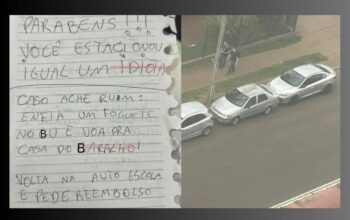 PARABENS!!!
VOCÊ ESTACIONOU
IGUAL UM IDIOTA
CASO ACHE RUIM:
ENFIA UM FOGUETE
NO BU E VOA PRA
CASA DO BARALHO!
VOLTA NA AUTO ESCOLA
E PEDE REEMBOLSO